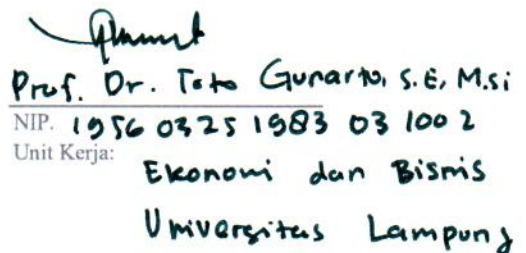 Prof. Dr. Toto Gunarto, S.E, M.si
NIP. 1956 0325 1983 03 100 2
Unit Kerja:
Ekonomi dan Bisnis
Universitas Lampung